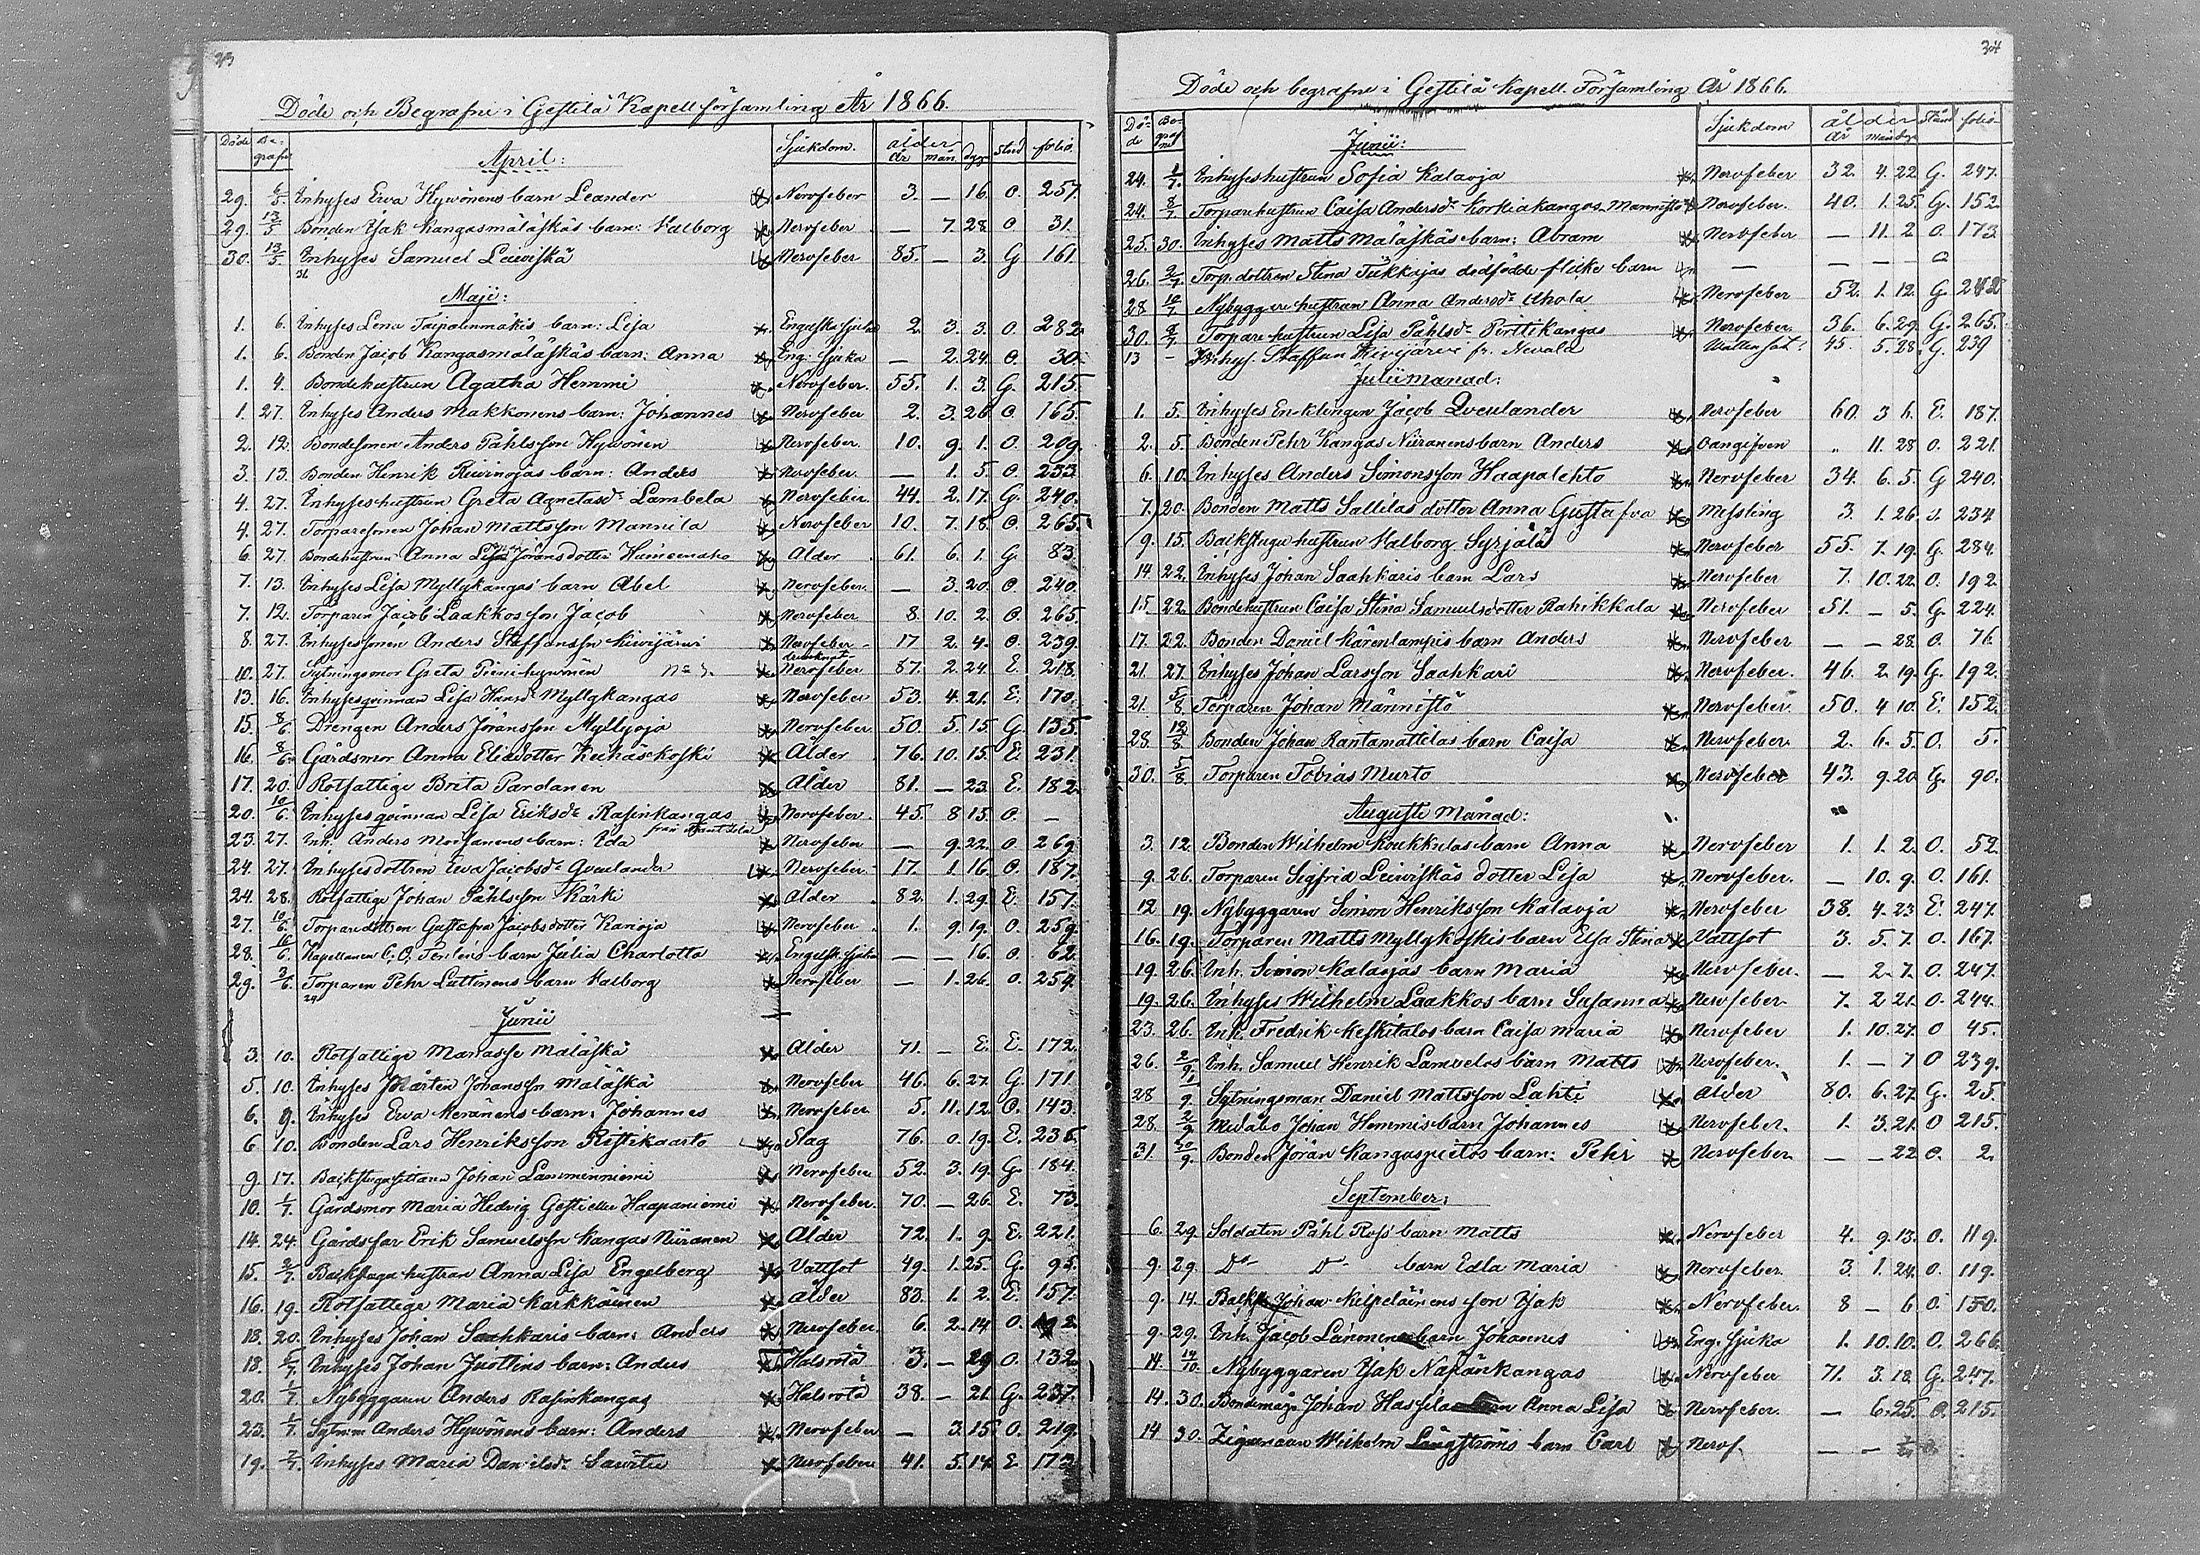 33
Döde och Begrafne i Gestilä Kapellförsamling År 1866.
Döde Be-grafne Sjukdom. ålder år mån. dgr stånd folio.
April:
29. 6/5 Inhyses Ewa Hywönens barn Leander Nervfeber 3. — 16. O. 257.
29. 13/5 Bonden Isak Kangasmäläskäs barn: Walborg Nervfeber — 7. 28. O 31.
30. 13/5 Inhyses Samuel Leiviskä Nervfeber 85. — 3. G 161.
Maji:
1. 6. Inhyses Lena Taipalenmäkis barn: Lisa Engelska sjukan 2. 3. 3. O. 282.
1. 6. Bonden Jacob Kangasmäläskäs barn: Anna Eng: sjuka — 2. 24. O. 30.
1. 4. Bondehustrun Agatha Hemmi Nervfeber. 55. 1. 3. G. 215.
1. 27. Inhyses Anders Makkonens barn: Johannes Nervfeber 2. 3. 26 O. 165.
2. 12. Bondesonen Anders Påhlsson Hywönen Nervfeber. 10. 9. 1. O. 209.
3. 13. Bonden Henrik Rewinojas barn: Anders Nervfeber. — 1. 5. O. 233.
4. 27. Inhyseshustrun Greta Agnetasdr Lambela Nervfeber. 44. 2. 17. G. 240.
4. 27. Torparesonen Johan Mattsson Mannila Nervfeber 10. 7. 18. O. 265.
6. 27. Bondehustrun Anna Lisa Jöransdotter Ålder 61. 6. 1. G. 83.
7. 13. Inhyses Lisa Myllykangas barn Abel Nervfeber. — 3. 20. O. 240.
7. 12. Torparen Jacob Laakkos son Jacob Nervfeber 8. 10. 2. O. 265.
8. 27. Inhysessonen Anders Staffansson Kiwijärwi Nervfeber 17 2. 4. O. 239.
10. 27. Sytningsmor Greta Pienihywönen Nervfeber 87. 2. 24. E. 218.
13. 16. Inhysesqvinnan Lisa Hansdr Myllykangas Nervfeber 53. 4. 21. E. 170.
15. 8/6 Drengen Anders Jöransson Myllyoja Nervfeber 50. 5. 15. G. 135.
16. 8/6 Gårdsmor Anna Elisdotter Keikäskoski Ålder 76. 10. 15. E. 231.
17. 20. Rotfattige Brita Pardanen Ålder 81. — 23. E. 182.
20. 10/6 Inhysesqvinnan Lisa Eriksdr Rasinkangas Nervfeber. 45. 8 15. O. —
23. 27. Inh. Anders barn: Ida Nervfeber — 9. 22. O. 269.
24. 27. Inhysesdottren Ewa Jacobsdr Qveulander Nervfeber 17. 1. 16. O. 187.
24. 28. Rotfattige Johan Påhlsson Kärki Ålder 82. 1. 29. E. 157.
27. 10/6 Torparedottren Gustafva Jacobsdotter Karioja Nervfeber 1. 9. 19. O. 259.
28. 16/6 Kapellanen C. O. barn Julia Charlotta Engelsk. sjukan — — 16. O. 62.
29. 3/6 Torparen Pehr Luttinens barn Walborg Nervfeber — 1. 26. O. 259.
Junii
3. 10. Rotfattige Manasse Mäläskä Ålder 71. — E. E. 172.
5. 10. Inhyses Mårten Johansson Mäläskä Nervfeber 46. 6. 27. G. 171.
6. 9. Inhyses Ewa Keränens barn: Johannes Nervfeber. 5. 11. 12. O. 143.
6 10. Bonden Lars Henriksson Ristikaarto Slag 76. 0. 19. E. 236.
9. 17. Backstugusittaren Johan Lamminniemi Nervfeber 52. 3. 19. G. 184.
10. 1/7. Gårdsmor Maria Hedvig Gesti eller Haapaniemi Nervfeber. 70. — 26. E. 73.
14. 24. Gårdsfar Erik Samuelsson Kangas Niiranen Ålder 72. 1. 9. E. 221.
15. 2/7. Backstuguhustrun Anna Lisa Engelberg Vattsot 49. 1. 25. G. 95.
16. 19. Rotfattige Maria Karkkainen Ålder 83. 1. 2. E. 157.
18. 20. Inhyses Johan Saahkaris barn: Anders Nervfeber. 6. 2. 14 O. 192.
18. 5/7. Inhyses Johan Juottins barn: Anders Halsröta 3. — 29 O. 132
20. 1/7 Nybyggaren Anders Rasinkangas Halsröta 38. — 21. G. 237.
23. 1/7. Sytn:m Anders Hywönens barn: Anders Nervfeber — 3. 15. O. 219.
19. 7/7. Inhyses Maria Danielsdr Nervfeber 41. 5. 14. E 172
34
Döde och begrafne i Gestilä Kapell Församling År 1866.
Dö-de Be-graf-ne Sjukdom ålder år mån dgr stånd folio
Junii:
24. 1/7. Inhyseshustrun Sofia Kalaoja Nervfeber 32. 4. 22 G. 247.
24. 8/7. Torparehustrun Caisa Andersdr Korkiakangas Männistö Nervfeber. 40. 1. 25. G. 152
25. 30. Inhyses Matts Mäläskäs barn: Abram Nervfeber — 11. 2 O. 173
26. 2/7. Torp. dottren Stina Tukkajas dödfödde flicke barn — — — —
28. 10/7 Nybyggarehustrun Anna Andersdr Ahola Nervfeber 52. 1. 12. G. 242
30. 2/7 Torparehustrun Lisa Påhlsdr Pirttikangas Nervfeber. 36. 6. 29. G. 265.
13 — Inhys. Staffan Kiwijärwi fr. Nevala Vattensot. 45. 5. 28. G. 239
Julii månad:
1. 5. Inhyses Enklingen Jacob Qveulander Nervfeber 60. 3 6. E. 187.
2. 5. Bonden Pehr Kangas Niiranens barn Anders Oangifven „ 11. 28 O. 221.
6. 10. Inhyses Anders Simonsson Haapalehto Nervfeber 34. 6. 5. G 240.
7. 20. Bonden Matts Sallilas dotter Anna Gustafva Messling 3. 1. 26. O. 234
9. 15. Backstuguhustrun Walborg Syrjälä Nervfeber 55. 7. 19. G. 284.
14. 22. Inhyses Johan Saahkaris barn Lars Nervfeber 7. 10. 22. O. 192.
15. 22. Bondehustrun Caisa Stina Samuelsdotter Rahikkala Nervfeber 51. — 5. G. 224.
17. 22. Bonden Daniel Kärenlampis barn Anders Nervfeber — — 28. O. 76.
21. 27. Inhyses Johan Larsson Saahkari Nervfeber. 46. 2. 19. G. 192.
21. 5/8. Torparen Johan Männistö Nervfeber. 50. 4 10. E. 152.
28. 12/8. Bonden Johan Rantamattilas barn Caisa Nervfeber. 2. 6. 5. O. 5.
30. 5/8. Torparen Tobias Murto Nervfeber 43. 9. 20. G. 90.
Augusti Månad:
3. 12. Bonden Wilhelm Koukkulas barn Anna Nervfeber 1. 1. 2. O. 52.
9. 26. Torparen Sigfrid Leiviskäs dotter Lisa Nervfeber. — 10. 9. O. 161.
12 19. Nybyggaren Simon Henriksson Kalaoja Nervfeber 38. 4. 23 E. 247.
16. 19. Torparen Matts Myllykoskis barn Elsa Stina Vattsot 3. 5. 7. O. 167.
19. 26. Inh. Simon Kalaojas barn Maria Nervfeber. — 2. 7. O. 247.
19. 26. Inhyses Wilhelm Laakkos barn Susanna Nervfeber. 7. 2 21. O. 244.
23. 26. Inh. Fredrik Keskitalos barn Caisa Maria Nervfeber 1. 10. 27. O 45.
26. 2/9. Inh. Samuel Henrik Lamvelos barn Matts Nervfeber. 1. — 7 O 239.
28 1/9. Sytningsman Daniel Mattsson Lahti Ålder 80. 6. 27. G. 25.
28. 2/9 Medåbo Johan Hemmis barn Johannes Nervfeber. 1. 3. 21. O 215.
31. 30/9. Bonden Jöran Kangaspuitos barn: Pehr Nervfeber. — — 22 O. 2.
September:
6. 29. Soldaten Påhl Ross barn Matts Nervfeber 4. 9. 13. O. 119.
9. 29. Do — Do barn Edla Maria Nervfeber. 3. 1. 24. O. 119.
9. 14. Backst. Johan Kelpeläinens son Isak Nervfeber. 8 — 6 O. 150.
9. 29. Inh. Jacob Länonens barn Johannes Eng. sjuka 1. 10. 10. O. 266
14. 14/10. Nybyggaren Isak Naränkangas Nervfeber 71. 3. 18. G. 247.
14. 30. Bondemåg. Johan Hassila barn Anna Lisa Nervfeber. — 6. 25. O. 215.
14 30. Zigenaren Wilhelm Långströms barn Carl Nervf. — —